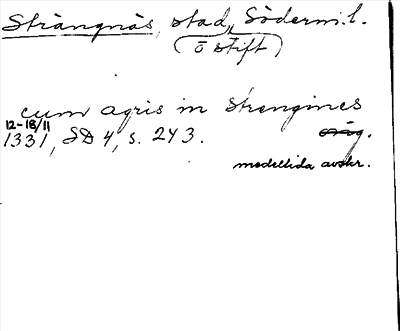 Strängnäs, stad, Söderm.l.
(o stift)
cum agris in Strengines
12-18/11
1331, SD 4, s. 243. orig.
medeltida avskr.